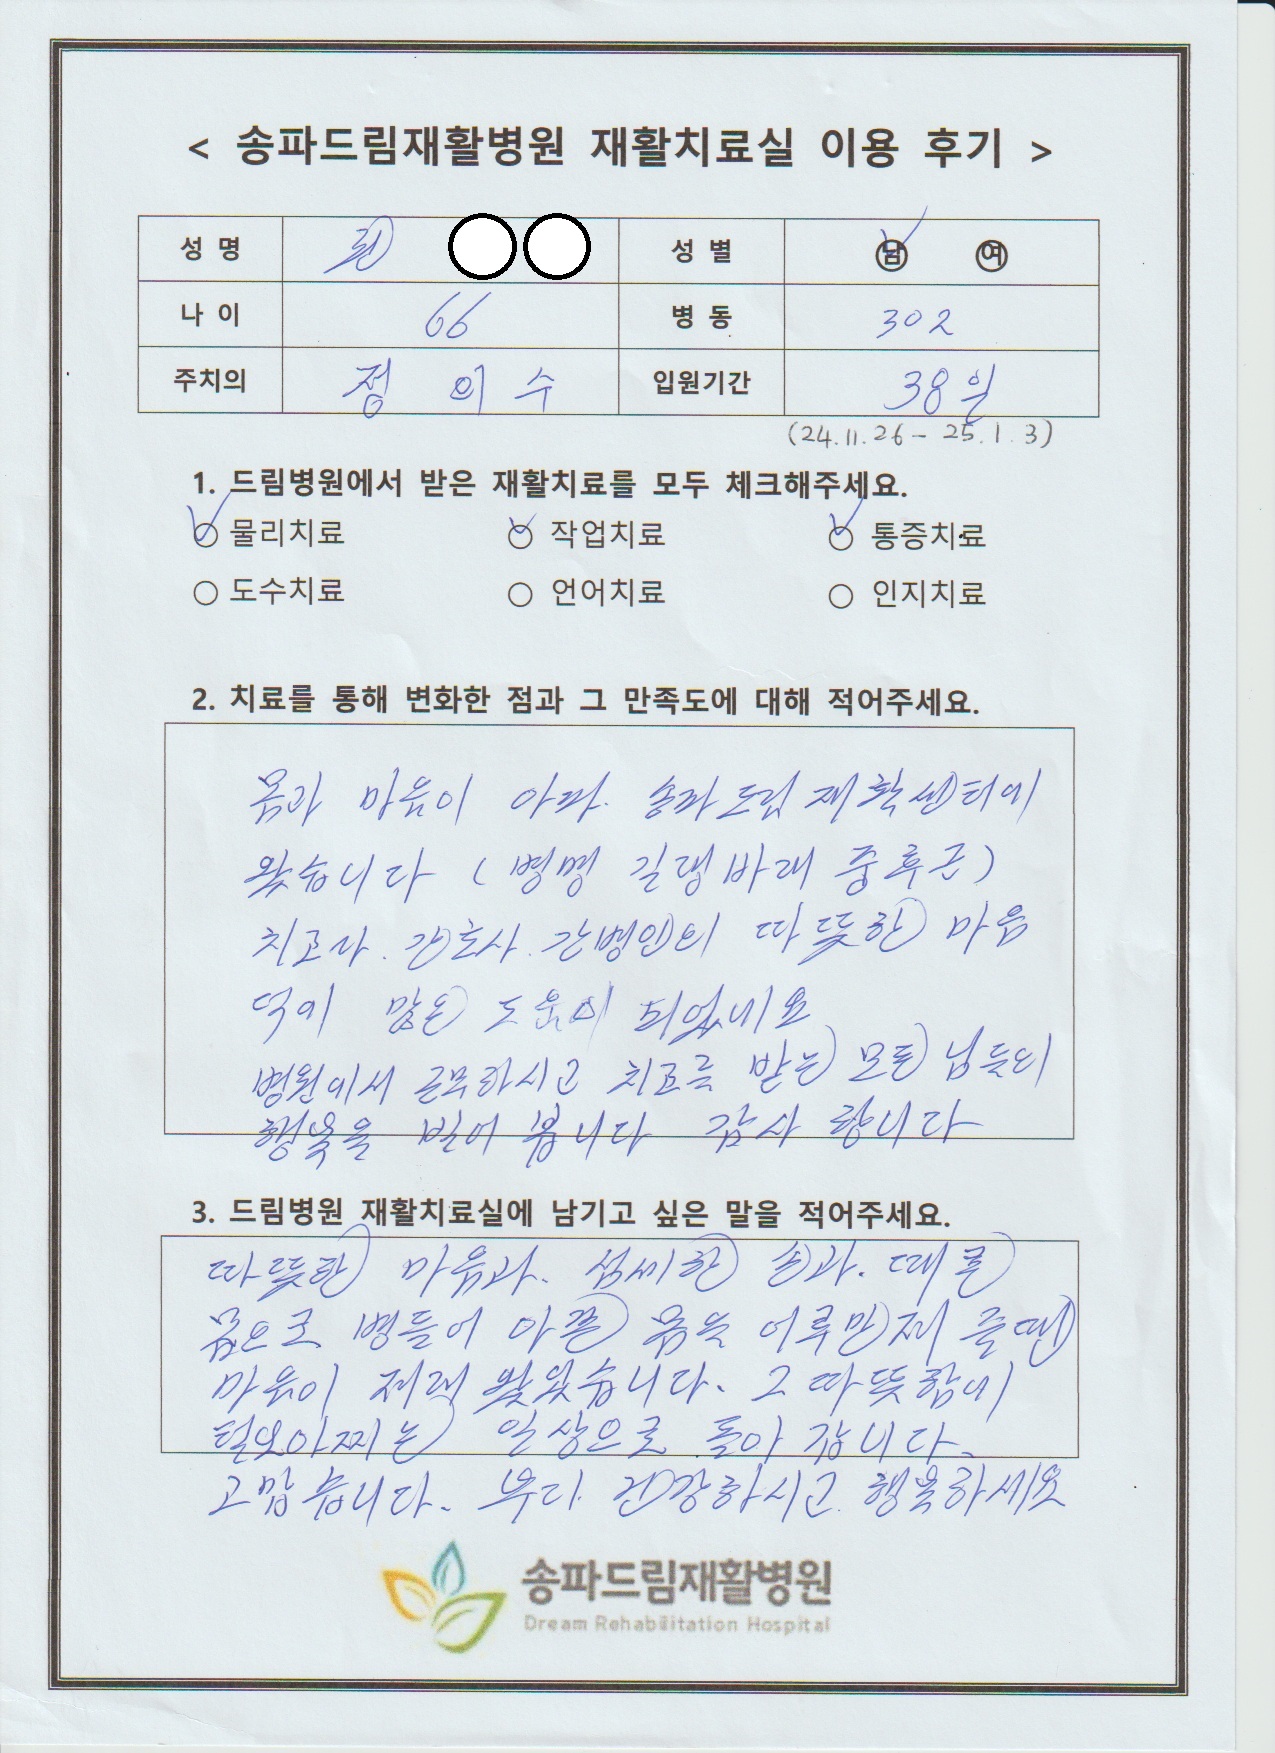 < 송파드림재활병원 재활치료실 이용 후기 >
성 명 성 별 남 여
나 이 66 병 동 302
주치의 정 의 수 입원기간 38일
(24.11.26 - 25.1.3)
1. 드림병원에서 받은 재활치료를 모두 체크해주세요.
물리치료 작업치료 통증치료
도수치료 언어치료 인지치료
2. 치료를 통해 변화한 점과 그 만족도에 대해 적어주세요.
몸과 마음이 아파. 송파드림 재활센터에
왔습니다 ( 병명 길랭바래 중후근 )
치료사. 간호사. 간병인의 따뜻한 마음
덕에 많은 도움이 되었네요
병원에서 근무하시고 치료를 받는 모든 님들의
행복을 빌어 봅니다 감사 합니다
3. 드림병원 재활치료실에 남기고 싶은 말을 적어주세요.
따뜻한 마음과. 섬세한 손과. 때론
몸으로 병들어 아픈 몸을 어루만져 줄땐
마음이 저려 왔습니다. 그 따뜻함에
일상으로 돌아 갑니다.
고맙습니다. 부디 건강하시고. 행복하세요
송파드림재활병원
Dream Rehabilitation Hospital